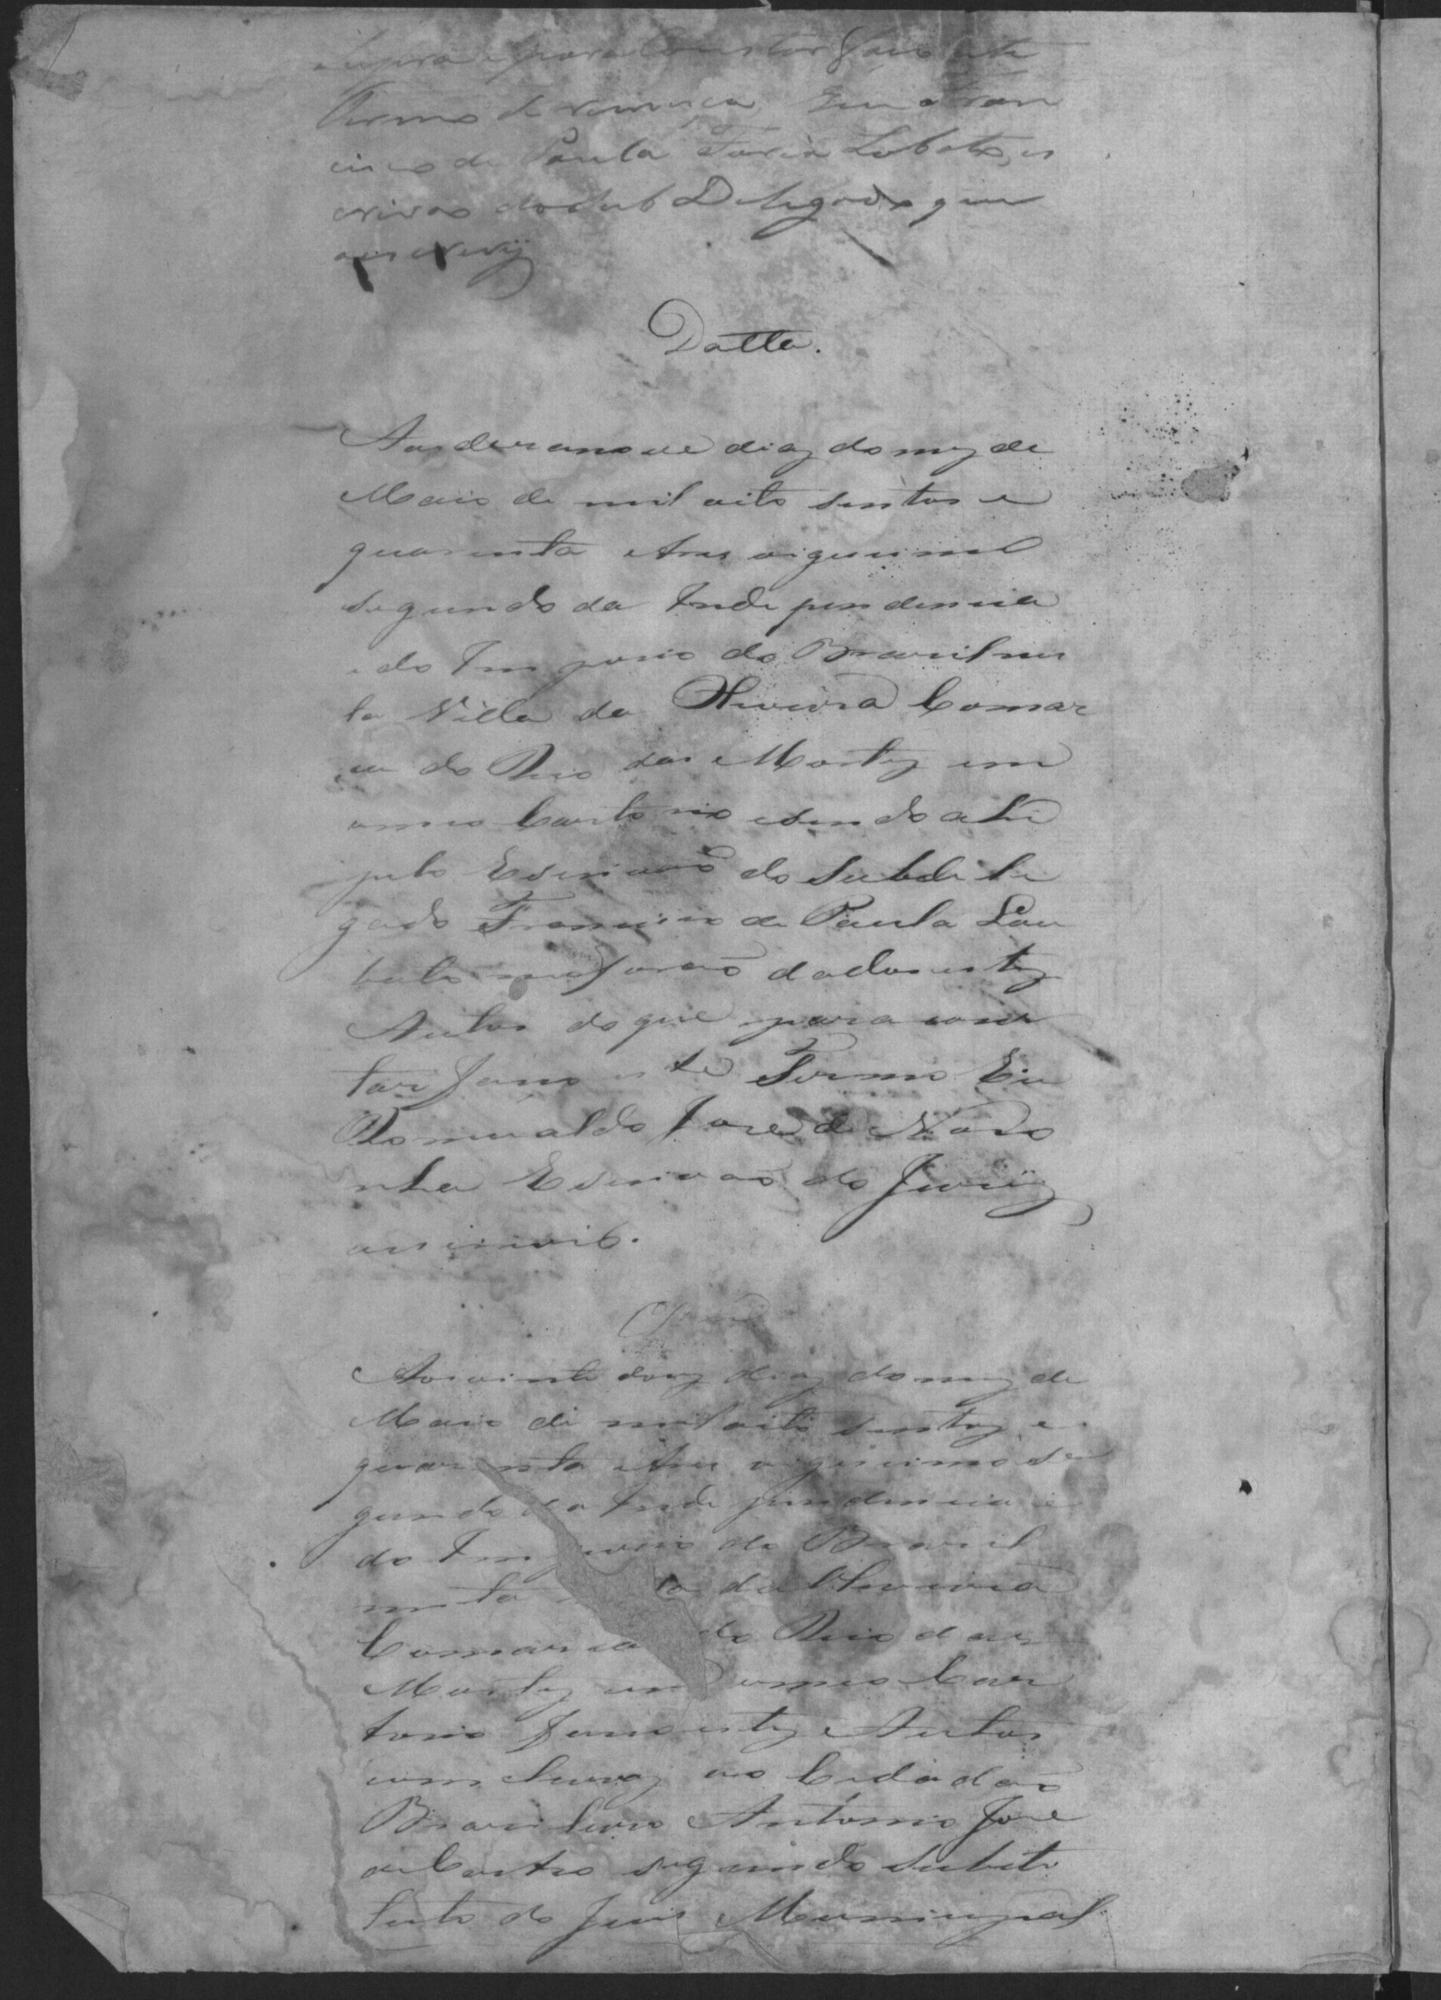 supra e para Constar faço este
Termo de remeça Eu Fran
cisco de Paula Faria Lobato, es
crivão do Sub Delegado que
escrevÿ
Datta.
Aos deranove diaz do mez de
Maio de mil oito sentos e
quarenta e tres vigecimo
segundo da Independencia
e do Imperio do Brazil nes
ta Villa da Oliveira Comar
ca do Rio das Mortez em
o meo Cartorio e sendo ahi
pelo Escrivaõ do Subdele
gado Francisco de Paula Lou
bato me foraõ dados estez
Autos do que para cons
tar faço este Termo Eu
Romualdo Jose de Noro
nha Escrivaõ do Juizo
as escrevi.
Aos vinte dous diaz do mez de
Maio de mil oito sentoz e
quarenta e tres vigecimo se
gundo da Independencia e
do Imperio do Brazil
nesta da Oliveira
Comarca do Rio das
Mortez em o meo Car
torio faço estez Autos
concluzoz ao Cidadaõ
Brazileiro Antonio Jose
de Castro segundo substi
tuto do Juis Municipal